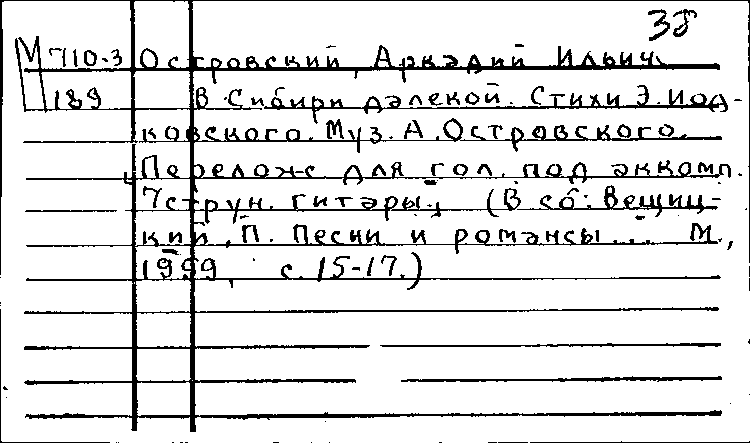 38
М 710-3 Островский, Аркадий Ильич.
189 В Сибири далекой. Стихи Э. Иод-
ковского. Муз. А. Островского.
Перелож. для гол. под аккомп.
7струн. гитары, (В сб: Вещиц-
кий, П. Песни и романсы... М.,
1959, с. 15-17.)